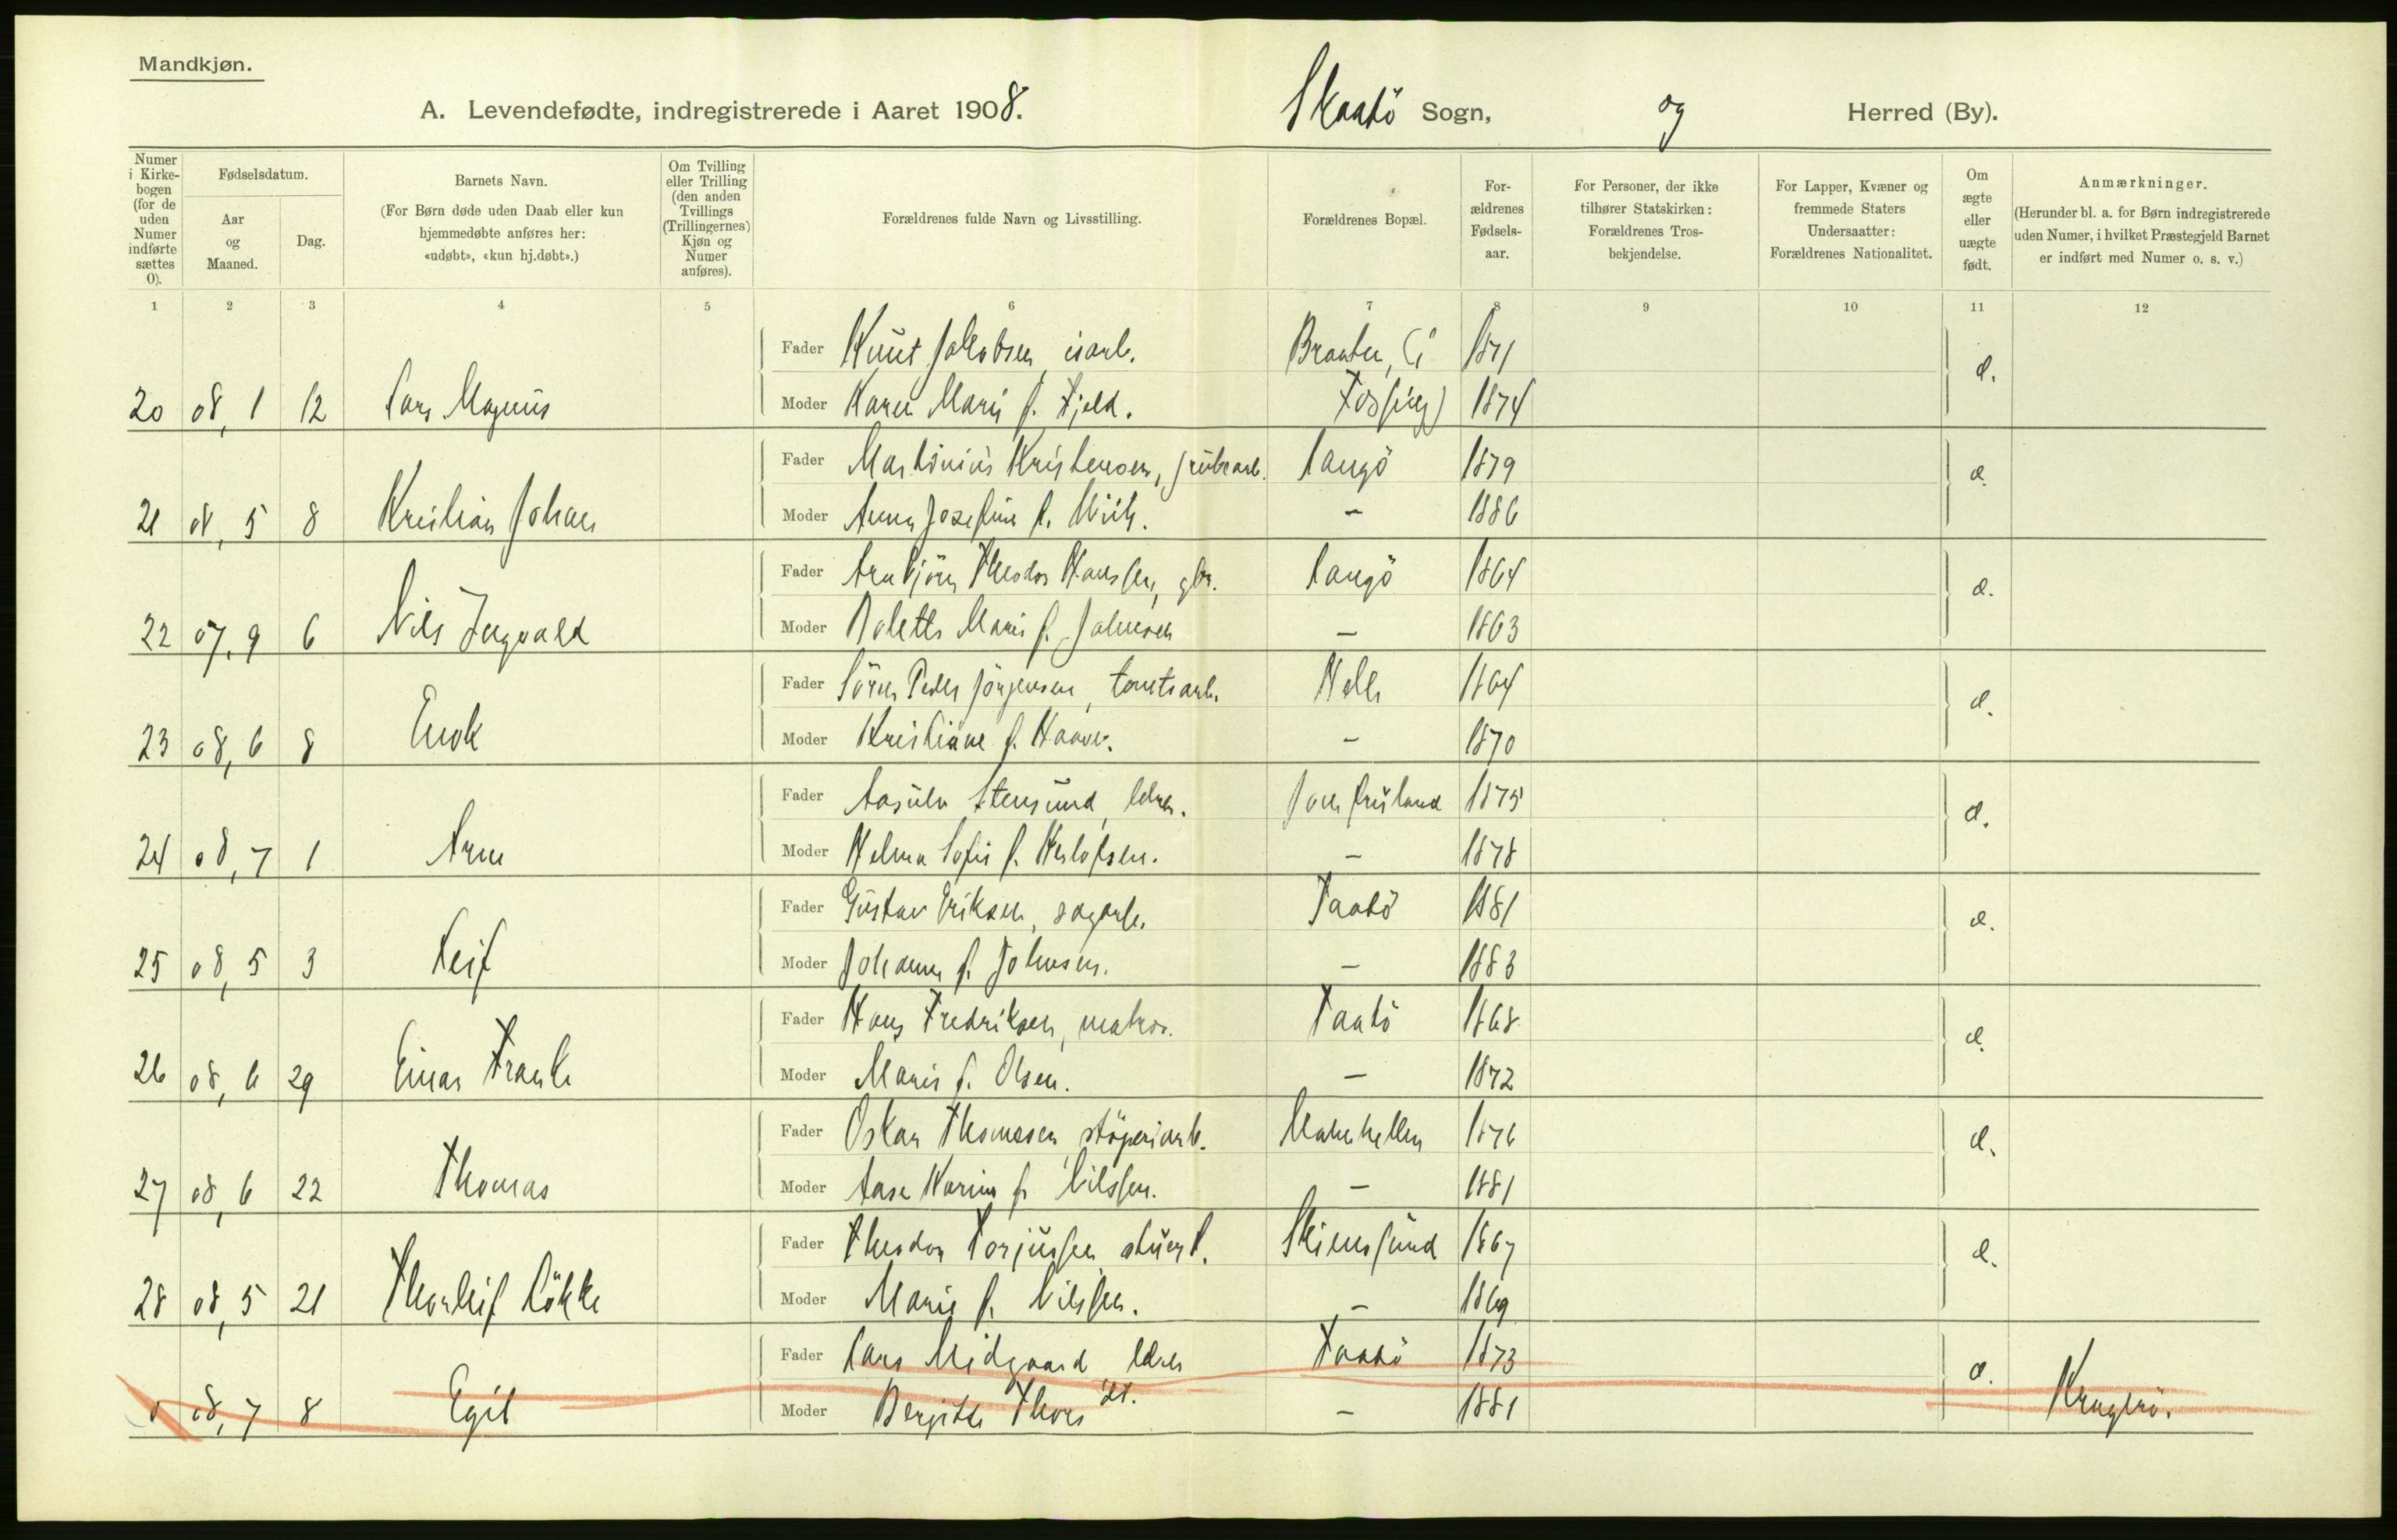 Mandkjøn.
A. Levendefødte, indregistrerede i Aaret 1908. Skaatö Sogn, og Herred (By).
Numer i Kirkebogen (for de uden Numer indførte sættes 0).
Fødselsdatum.
Aar og Maaned.
Dag.
Barnets Navn.
(For Børn døde uden Daab eller kun hjemmedøbte anføres her: «udøbt», «kun hj.døbt».)
Om Tvilling eller Trilling (den anden Tvillings (Trillingernes) Kjøn og Numer anføres).
Forældrenes fulde Navn og Livsstilling.
Forældrenes Bopæl.
For-ældrenes Fødsels-aar.
For Personer, der ikke tilhører Statskirken: Forældrenes Tros-bekjendelse.
For Lapper, Kvæner og fremmede Staters Undersaatter: Forældrenes Nationalitet.
Om ægte eller uægte født.
Anmærkninger.
(Herunder bl. a. for Børn indregistrerede uden Numer, i hvilket Præstegjeld Barnet er indført med Numer o. s. v.)
1 2 3 4 5 6 7 8 9 10 11 12
Fader Knut Jakobsen, isarb. Braaten, (i 1871
20 08, 1 12 Lars Magnus Moder Karen Marie f. Fjeld. Fossing) 1874
Fader Martinius Kristensen, grubearb. Langö 1879
21 08, 5 8 Kristian Johan Moder Anna Josefine f. - 1886
Fader Arnbjörn Theodor Hanssen, gbr. Langö 1864
22 07, 9 6 Nils Ingvald Moder Bolette Marie f. Johnsen - 1863
Fader Sören Peder Jörgensen, tomtearb. Helle 1864
23 08, 6 8 Enok Moder Kristiane f. - 1870
Fader Aasulv Stensund, Jomfruland 1875
24 08, 7 1 Arne Moder Helma Sofie f. Herlofsen. - 1878
Fader Gustav Eriksen, sagarb. Taatö 1881
25 08, 5 3 Leif Moder Johanne f. Johnsen. - 1883
Fader Hans Fredriksen, matros. Taatö 1868
26 08, 6 29 Einar Frank Moder Marie f. Olsen. - 1872
Fader Oskar Thomesen, støperiarb. 1876
27 08, 6 22 Thomas Moder Aase Karine f. Nilssen. - 1881
Fader Theodor Torjussen, stuert. Skiensund 1867
28 08, 5 21 Thorleif Lökke Moder Marie f. Nilssen. - 1869
Fader Lars Midgaard, Taatö 1873
0 08, 7 8 Egil Moder Bergitte - 1881 Kragerö.